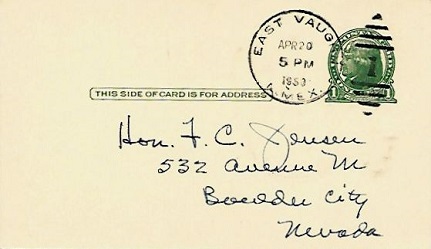 EAST VAUG
APR 20
5 PM
N. MEX.
THIS SIDE OF CARD IS FOR ADDRESS
Hon. F. C. Jensen
532 Avenue M
Boulder City
Nevada